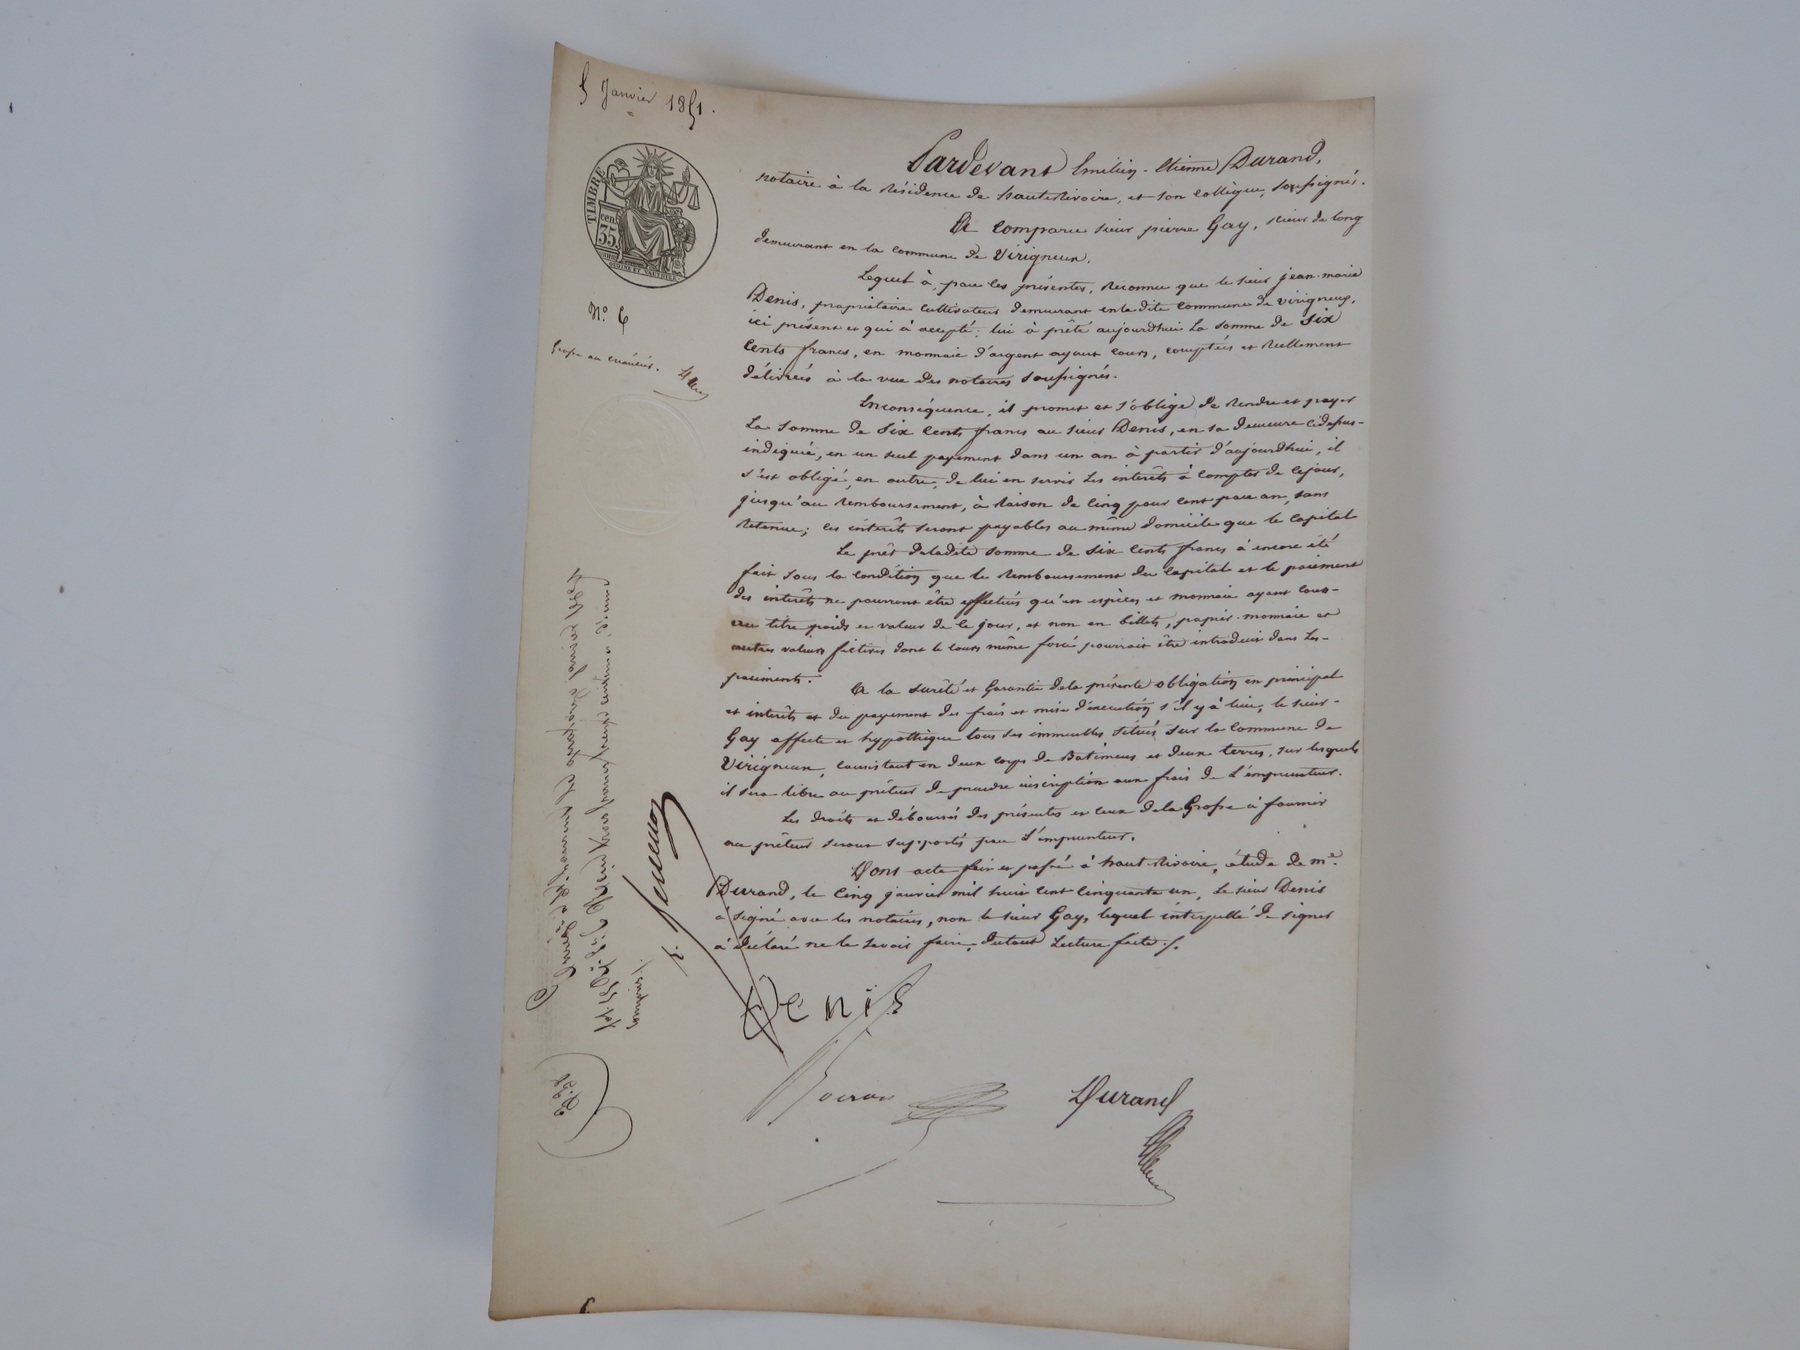 5 Janvier 1851.
TIMBRE
35
cent
N.° 6
Grosse au créancier.
Pardevant Emilien-Etienne Durand,
notaire à la Résidence de hauterivoire, et son collègue, soussignés.
A Comparu sieur pierre Gay, scieur de long
demeurant en la commune de Virigneux.
Lequel à, par les présentes, reconnu que le sieur jean-marie
Denis, propriétaire cultivateur demeurant en la dite commune de virigneux,
ici présent et qui à accepté: lui à prêté aujourdhui la somme de Six
Cents francs, en monnaie d'argent ayant cours, comptés et réellement
délivrés à la vue des notaires soussignés.
Enconséquence, il promet et s'oblige de Rendre et payer
La Somme de Six Cents francs au sieur Denis, en sa demeure cidessus-
indiquée, en un seul payement dans un an à partir d'aujourdhui, il
s'est obligé, en outre, de lui en servir les intérêts à compter de cejour,
jusqu'au remboursement, à Raison de Cinq pour Cent par an, sans
Retenue; les intérêts seront payables au même domicile que le Capital
Le prêt deladite somme de Six Cents francs à encore été
fait sous la condition que le remboursement du Capital et le paiement
des intérêts ne pourront être effectués qu'en espèces et monnaie ayant cours-
au titre poids et valeur de ce jour, et non en billets, papier-monnaie et
autres valeurs fictives dont le cours même forcé pourrait être introduit dans les-
paiements.
A la sureté et Garantie dela présente obligation en principal
et intérêts et du payement des frais et mise d'éxecution s'il y à lieu, le sieur-
Gay affecte et hypothèque tous ses immeubles situés sur la Commune de
Virigneux, Consistant en deux corps de Batimens et deux terres, sur lesquels
il sera libre au prêteur de prendre inscription aux frais de L'emprunteur.
Les droits et déboursés des présentes et ceux dela Grosse à fournir
au prêteur seront supportés par L'emprunteur.
Dont acte fait et passé à hauterivoire, étude de m.e
Durand, le Cinq janvier mil huit cent Cinquante un, Le sieur Denis
à signé avec les notaires, non le sieur Gay, lequel interpellé de signer
à déclaré ne le savoir faire, dutout Lecture faite./.
Denis
Durand